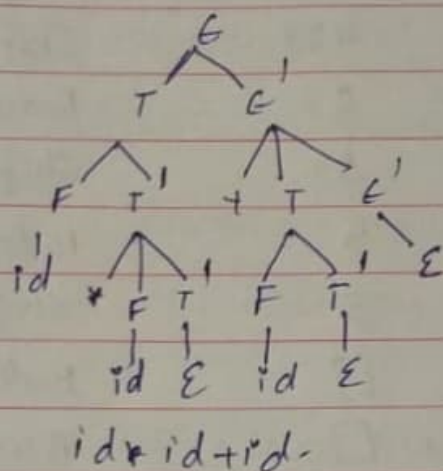 E
T E'
F T' + T E'
id * F T' F T' ε
id ε id ε
id * id + id.